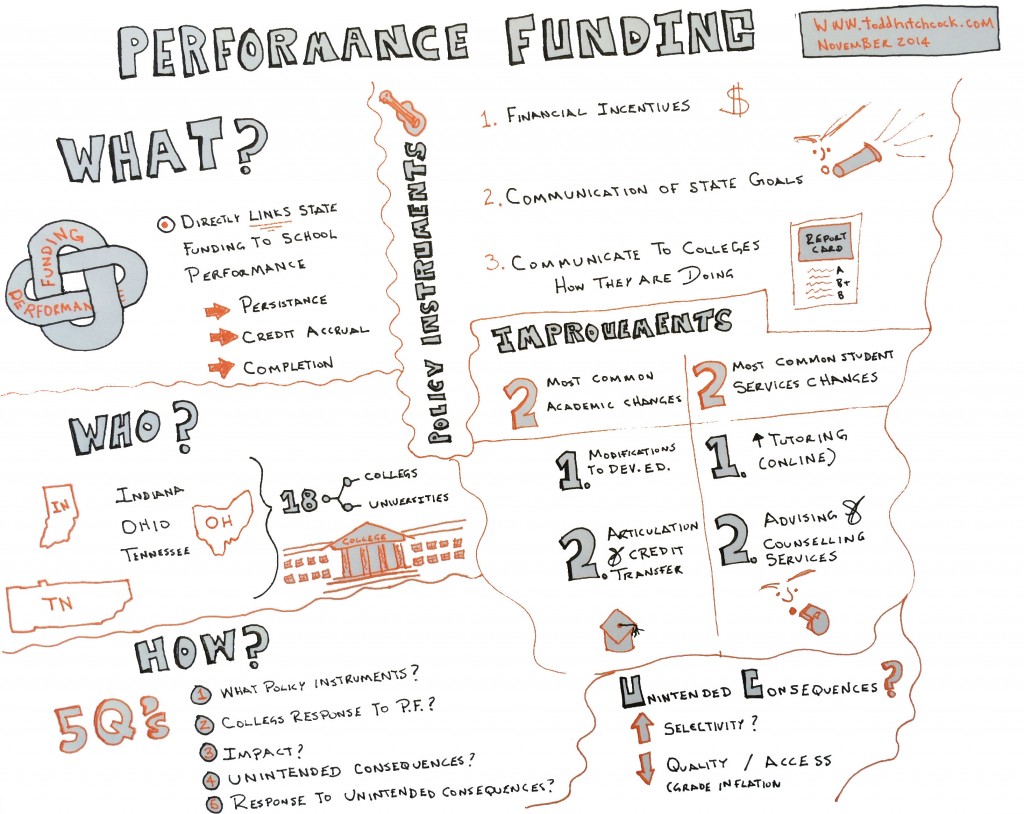 PERFORMANCE FUNDING
WWW.toddhitchcock.com
NOVEMBER 2014
WHAT?
FUNDING
PERFORMANCE
DIRECTLY LINKS STATE
FUNDING TO SCHOOL
PERFORMANCE
PERSISTANCE
CREDIT ACCRUAL
COMPLETION
POLICY INSTRUMENTS
1. FINANCIAL INCENTIVES $
2. COMMUNICATION OF STATE GOALS
3. COMMUNICATE TO COLLEGES
HOW THEY ARE DOING
REPORT
CARD
A
B+
B
IMPROVEMENTS
2 MOST COMMON
ACADEMIC CHANGES
2 MOST COMMON STUDENT
SERVICES CHANGES
1. MODIFICATIONS
TO DEV. ED.
2. ARTICULATION
& CREDIT
TRANSFER
1. ↑ TUTORING
(ONLINE)
2. ADVISING &
COUNSELLING
SERVICES
WHO?
IN
INDIANA
OHIO
TENNESSEE
OH
TN
18
COLLEGS
UNIVERSITIES
COLLEGE
HOW?
5Q's
1 WHAT POLICY INSTRUMENTS?
2 COLLEGS RESPONSE TO P.F.?
3 IMPACT?
4 UNINTENDED CONSEQUENCES?
5 RESPONSE TO UNINTENDED CONSEQUENCES?
UNINTENDED CONSEQUENCES?
SELECTIVITY?
QUALITY / ACCESS
(GRADE INFLATION